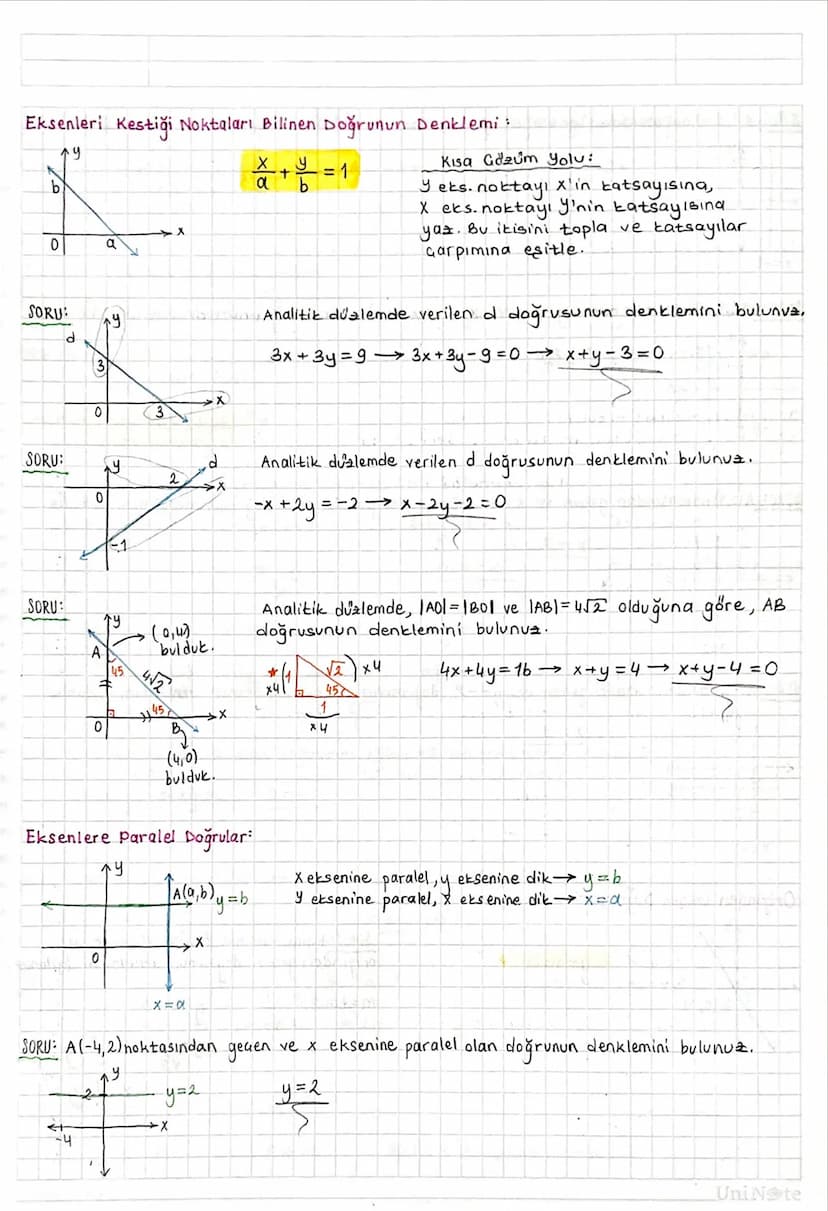 Eksenleri Kestiği Noktaları Bilinen Doğrunun Denklemi:
y
b
0
a
x
x/a + y/b = 1
Kısa Çözüm Yolu:
y eks. noktayı x'in katsayısına,
x eks. noktayı y'nin katsayısına
yaz. Bu ikisini topla ve katsayılar
çarpımına eşitle.
SORU:
d
y
3
0
3
x
Analitik düzlemde verilen d doğrusunun denklemini bulunuz.
3x + 3y = 9 → 3x + 3y - 9 = 0 → x + y - 3 = 0
SORU:
y
d
2
x
0
-1
Analitik düzlemde verilen d doğrusunun denklemini bulunuz.
-x + 2y = -2 → x - 2y - 2 = 0
SORU:
y
(0,4)
bulduk.
A
45
4√2
45
0
B
x
(4,0)
bulduk.
Analitik düzlemde, |AO| = |BO| ve |AB| = 4√2 olduğuna göre, AB
doğrusunun denklemini bulunuz.
* x4 ( 1 √2 ) x4
45
1
x4
4x + 4y = 16 → x + y = 4 → x + y - 4 = 0
Eksenlere Paralel Doğrular:
y
A(a,b)
y = b
x
0
x = a
x eksenine paralel, y eksenine dik → y = b
y eksenine paralel, x eksenine dik → x = a
SORU: A(-4,2) noktasından geçen ve x eksenine paralel olan doğrunun denklemini bulunuz.
y
2
y = 2
x
-4
y = 2
UniNote